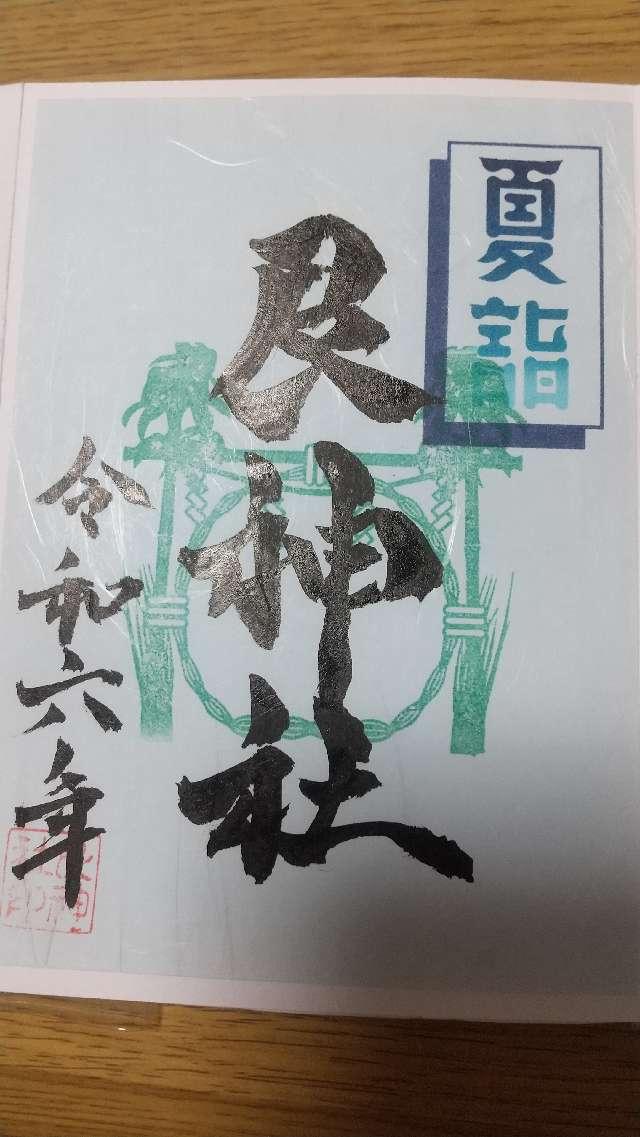 夏詣
艮神社
令和六年